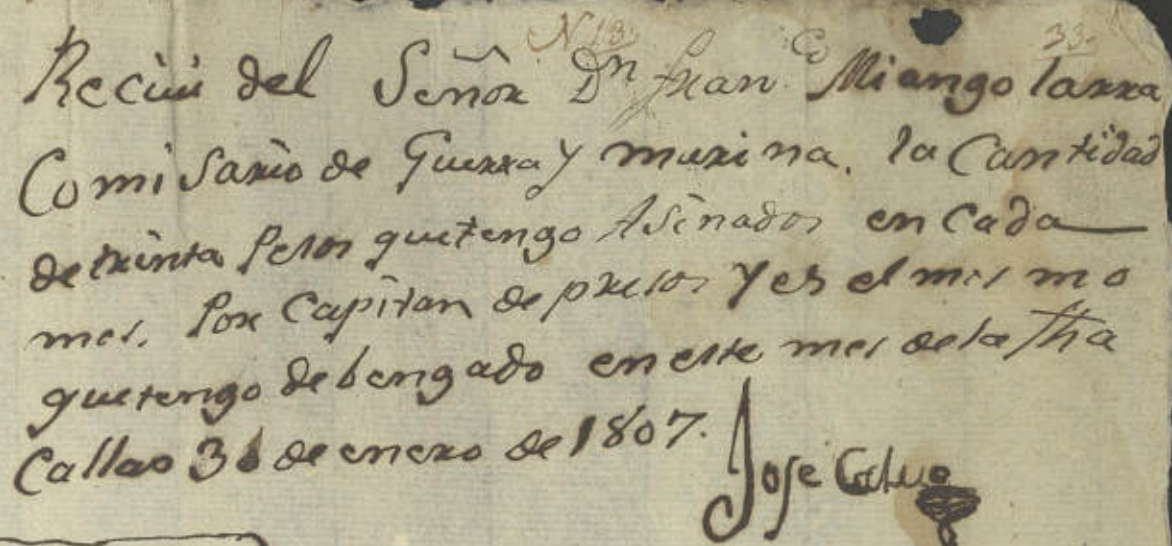 N 18. 33.
Reciui del Señor Dn Franco Miangolarra
Comisario de Guerra y marina. la Cantidad
de treinta Pesos que tengo Asinados en Cada
mes. Por Capitan de presos y es el mismo
que tengo debengado en este mes de la fha
Callao 31 de enero de 1807.
Jose Calvo